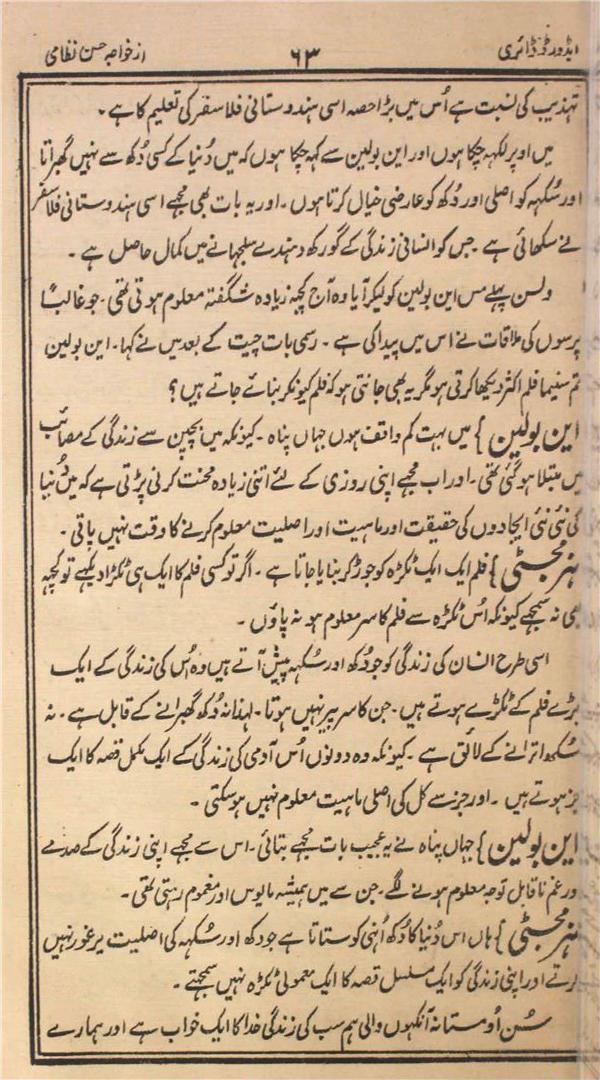 ایڈورڈ ڈائری ۶۳ از خواجہ حسن نظامی
تہذیب کی نسبت ہے اُس میں بڑا حصہ اسی ہندوستانی فلاسفر کی تعلیم کا ہے ۔
میں اوپر لکہہ چکا ہوں اور این بولین سے کہہ چکا ہوں کہ میں دُنیا کے کسی دُکھ سے نہیں گھبراتا
اور سُکہہ کو اصلی اور دُکھ کو عارضی خیال کرتا ہوں ۔ اور یہ بات بھی مجھے اسی ہندوستانی فلاسفر
نے سکھائی ہے ۔ جس کو انسانی زندگی کے گورکھ دہندے سلجھانے میں کمال حاصل ہے ۔
ولسن پہلے مس این بولین کو لیکر آیا وہ آج کچہہ زیادہ شگفتہ معلوم ہوتی تھی ۔ جو غالباً
پرسوں کی ملاقات نے اس میں پیدا کی ہے ۔ رسمی بات چیت کے بعد میں نے کہا ۔ این بولین
تم سنیما فلم اکثر دیکھا کرتی ہو مگر یہ بھی جانتی ہو کہ فلم کیونکر بنائے جاتے ہیں ؟
این بولین } میں بہت کم واقف ہوں جہاں پناہ ۔ کیونکہ میں بچپن سے زندگی کے مصائب
میں مبتلا ہو گئی تھی ۔ اور اب مجھے اپنی روزی کے لئے اتنی زیادہ محنت کرنی پڑتی ہے کہ میں دُنیا
کی نئی نئی ایجادوں کی حقیقت اور ماہیت اور اصلیت معلوم کرنے کا وقت نہیں پاتی ۔
ہنر مجسٹی } فلم ایک ایک ٹکڑہ کو جوڑ کر بنایا جاتا ہے ۔ اگر تو کسی فلم کا ایک ہی ٹکڑا دیکہے تو کچہہ
بھی نہ سمجھے کیونکہ اُس ٹکڑہ سے فلم کا سر معلوم ہو نہ پاؤں ۔
اسی طرح انسان کی زندگی کو جو دُکھ اور سُکہہ پیش آتے ہیں وہ اُس کی زندگی کے ایک
بڑے فلم کے ٹکڑے ہوتے ہیں ۔ جن کا سر پیر نہیں ہوتا ۔ لہذا نہ دُکھ گھبرانے کے قابل ہے ۔ نہ
سُکھ اترانے کے لائق ہے ۔ کیونکہ وہ دونوں اُس آدمی کی زندگی کے ایک مکمل قصہ کا ایک
جز ہوتے ہیں ۔ اور جز سے کل کی اصلی ماہیت معلوم نہیں ہو سکتی ۔
این بولین } جہاں پناہ نے یہ عجیب بات مجھے بتائی ۔ اس سے مجھے اپنی زندگی کے صدمے
ور غم ناقابل توجہ معلوم ہونے لگے ۔ جن سے میں ہمیشہ مایوس اور مغموم رہتی تھی ۔
ہنر مجسٹی } ہاں اس دُنیا کا دُکھ اُنہی کو ستاتا ہے جو دکھ اور سُکہہ کی اصلیت پر غور نہیں
کرتے اور اپنی زندگی کو ایک مسلسل قصہ کا ایک معمولی ٹکڑہ نہیں سمجھتے ۔
سُن او مستانہ آنکہوں والی ہم سب کی زندگی خدا کا ایک خواب ہے اور ہمارے